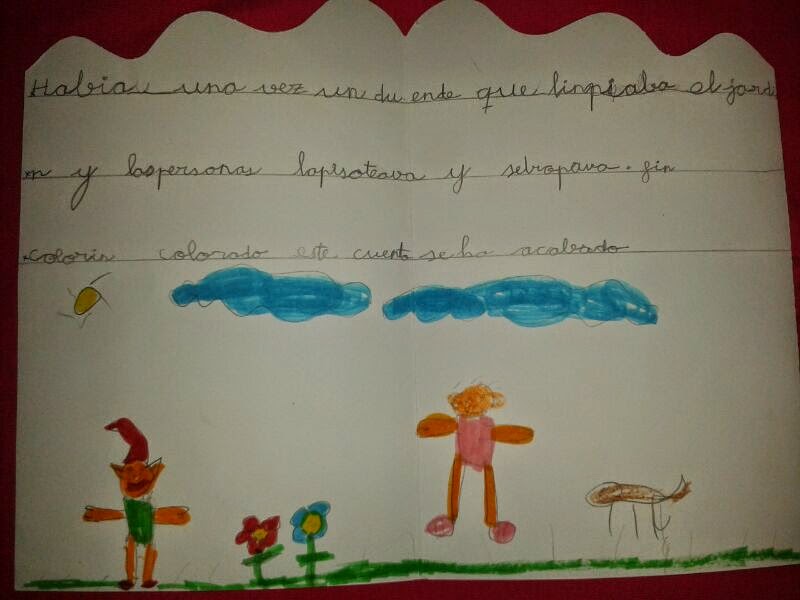 Habia una vez un duende que linpiaba el jardi
n y laspersonas lapisoteava y seropava. fin
colorin colorado este cuento se ha acabado